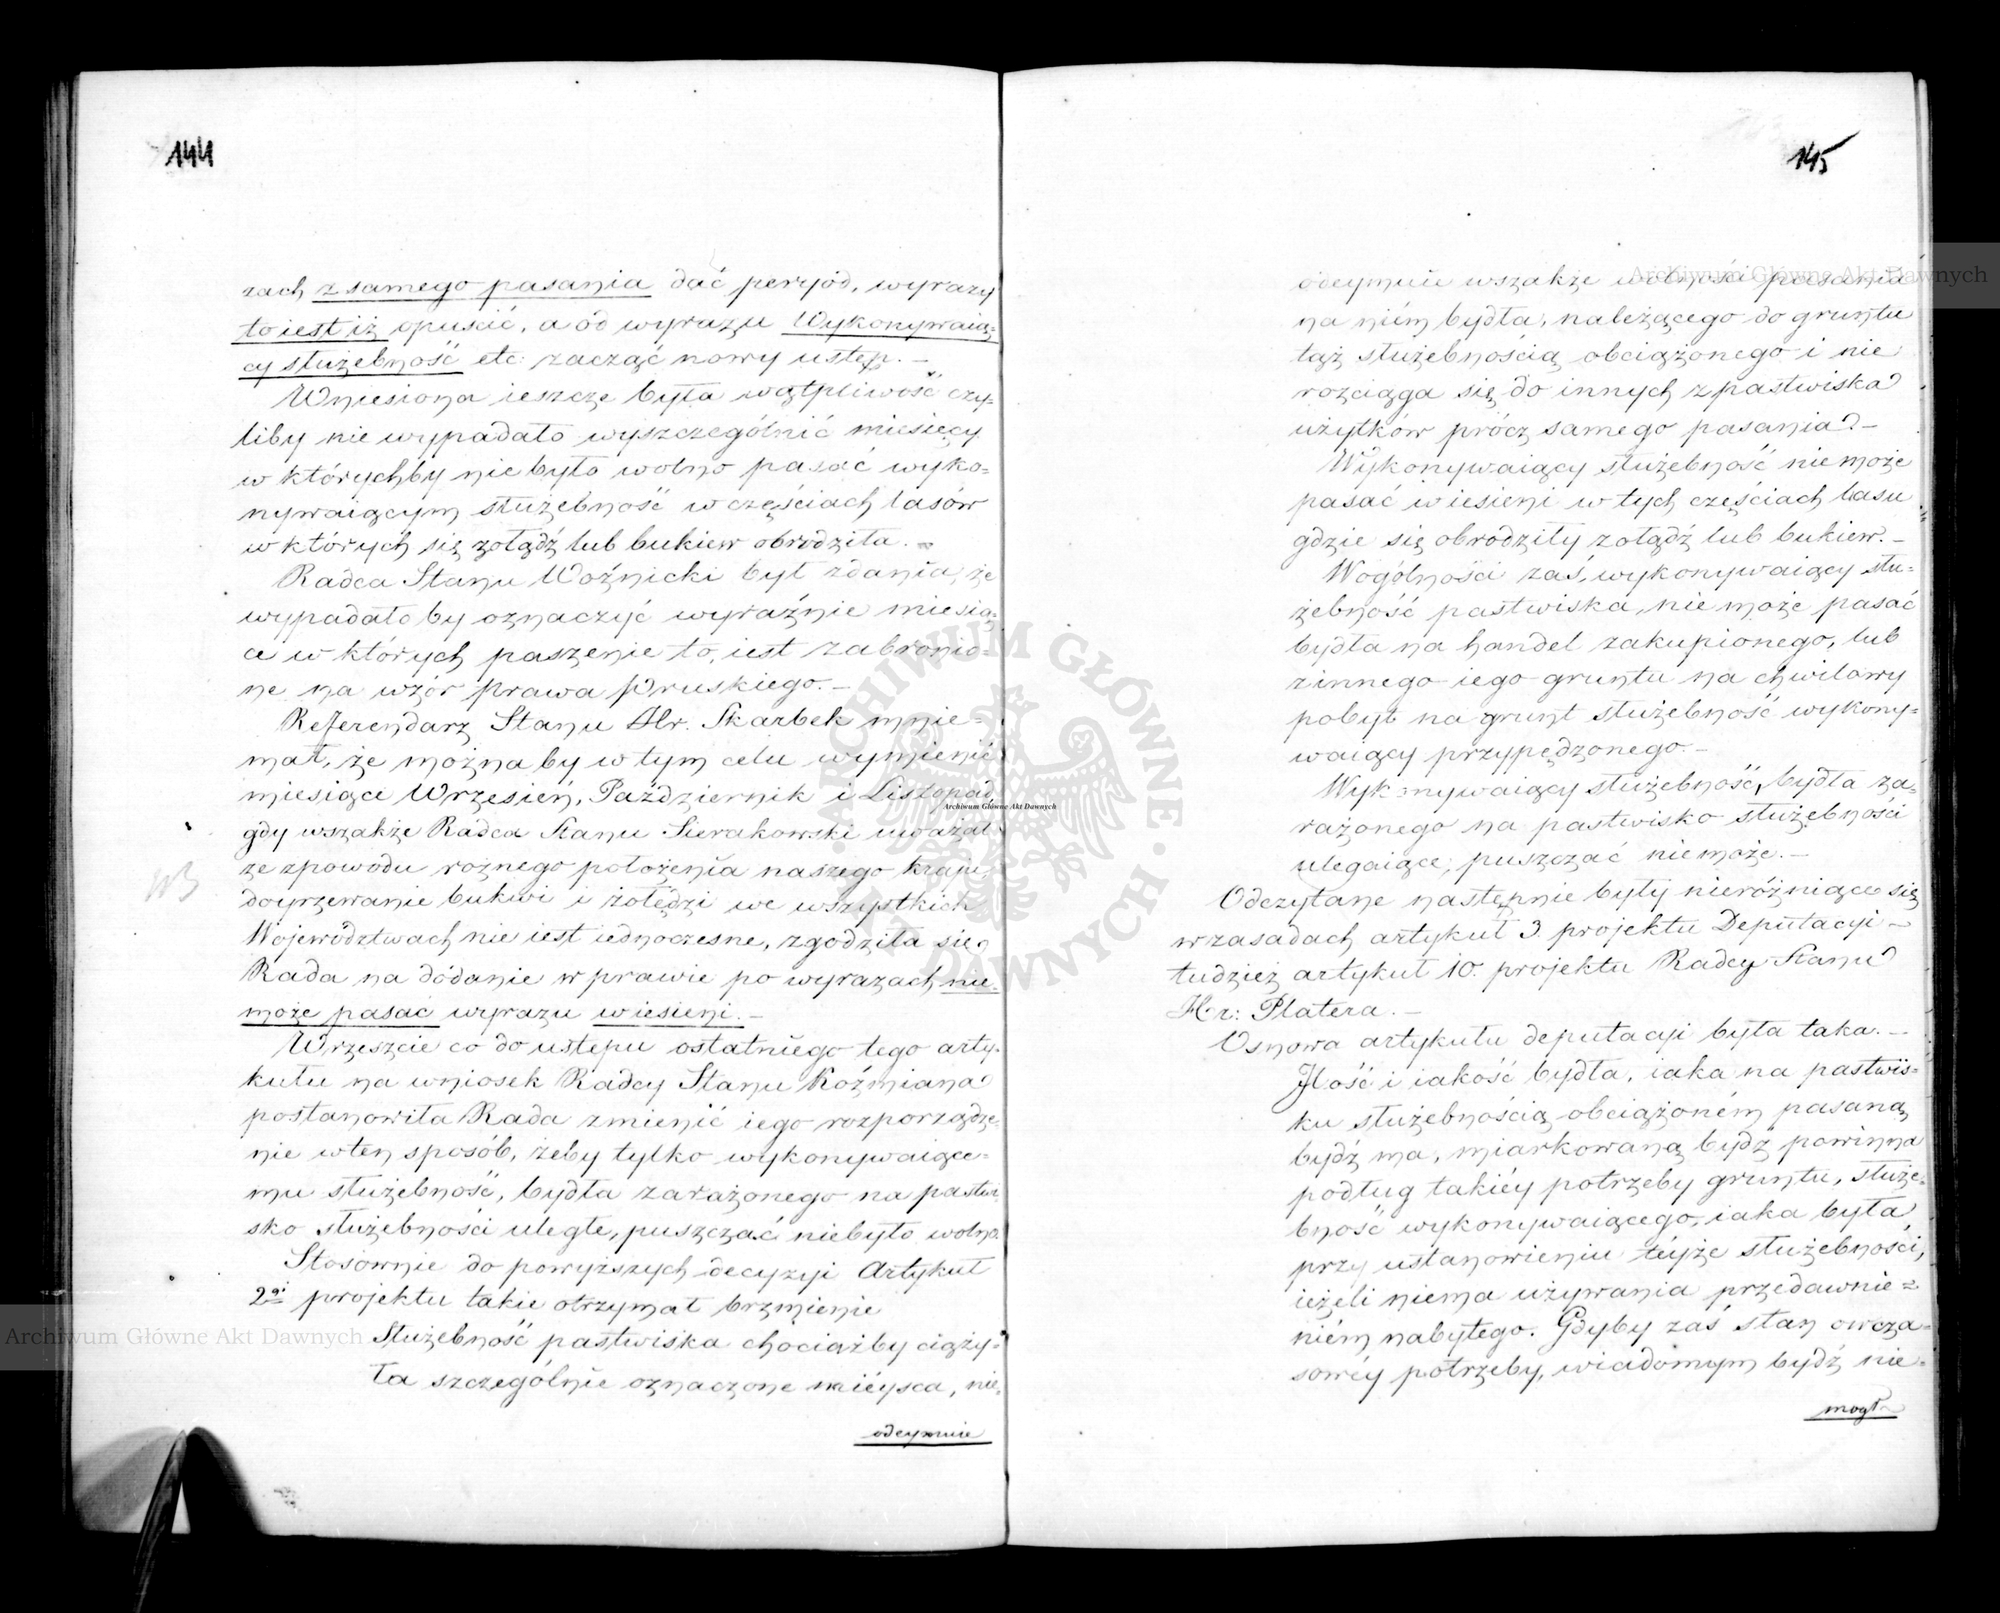 144
zach z samego pasania dać peryjod, wyrazy
to iest iż opuścić, a od wyrazu Wykonywaią-
cy służebność etc: zacząć nowy ustęp. –
Wniesiona ieszcze była wątpliwość czy-
liby nie wypadało wyszczególnić miesięcy
w którychby nie było wolno pasać wyko-
nywaiącym służebność w częściach lasów
w których się żołądź lub bukiew obrodziła. –
Radca Stanu Woźnicki był zdania, że
wypadało by oznaczyć wyraźnie miesią-
ce w których paszenie to, iest zabronio-
ne na wzór prawa Pruskiego. –
Referendarz Stanu Hr. Skarbek mnie-
mał, że możnaby w tym celu wymienić
miesiące Wrzesień, Październik i Listopad
gdy wszakże Radca Stanu Sierakowski uważał
że z powodu rożnego położenia naszego kraju,
doyrzewanie bukwi i żołędzi we wszystkich
Województwach nie iest iednoczesne, zgodziła się
Rada na dodanie w prawie po wyrazach nie
może pasać wyrazu w iesieni. –
Wrzeszcie co do ustępu ostatniego tego arty-
kułu na wniosek Radcy Stanu Koźmiana
postanowiła Rada zmienić iego rozporządze-
nie w ten sposób, żeby tylko wykonywaiące-
mu służebność, bydła zarażonego na pastwi-
sko służebności uległe, puszczać niebyło wolno.
Stosownie do powyższych decyzyi Artykuł
2gi projektu takie otrzymał brzmienie
Służebność pastwiska chociażby ciąży-
ła szczególnie oznaczone mieysca, nie
odeymuie
145
odeymuie wszakże wolności pasania
na niém bydła, należącego do gruntu
tąż służebnością obciążonego i nie
rozciąga się do innych z pastwiska
użytków prócz samego pasania. –
Wykonywaiący służebność nie może
pasać w iesieni w tych częściach lasu
gdzie się obrodziły żołądź lub bukiew. –
Wogólności zaś, wykonywaiący słu-
żebność pastwiska, nie może pasać
bydła na handel zakupionego, lub
z innego iego gruntu na chwilowy
pobyt na grunt służebność wykony-
waiący przypędzonego. –
Wykonywaiący służebność, bydła za-
rażonego na pastwisko służebności
ulegaiące, puszczać niemoże. –
Odczytane następnie były nieróżniące się
w zasadach artykuł 3. projektu Deputacyi –
tudzież artykuł 10. projektu Radcy Stanu
Hr: Platera. –
Osnowa artykułu deputacyi była taka. –
Ilość i iakość bydła, iaka na pastwis-
ku służebnością obciążoném pasaną
bydź ma, miarkowaną bydź powinna
podług takiéy potrzeby gruntu, służe-
bność wykonywaiącego, iaka była
przy ustanowieniu téyże służebności,
ieżeli niema używania przedawnie-
niém nabytego. Gdyby zaś stan owcza-
sowéy potrzeby, wiadomym bydź nie-
mogł
Archiwum Główne Akt Dawnych
Archiwum Główne Akt Dawnych
Archiwum Główne Akt Dawnych
ARCHIWUM GŁÓWNE AKT DAWNYCH